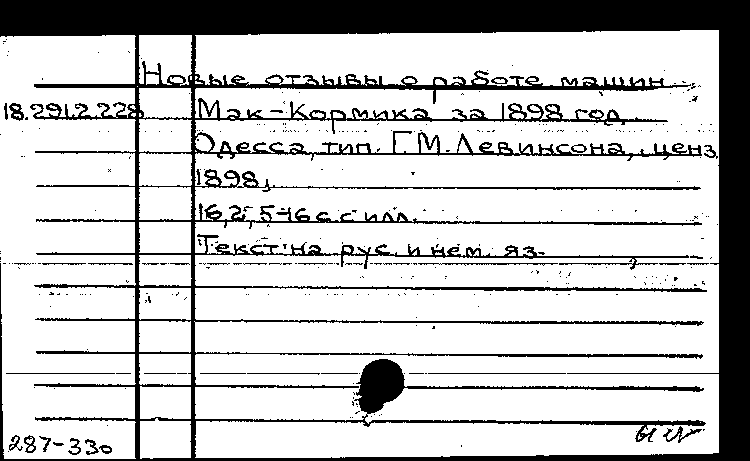 Новые отзывы о работе машин
18.291.2.228 Мак-Кормика за 1898 год.
Одесса, тип. Г.М. Левинсона, ценз.
1898,
16,2, 5-16 с с илл.
Текст на рус. и нем. яз.
287-330